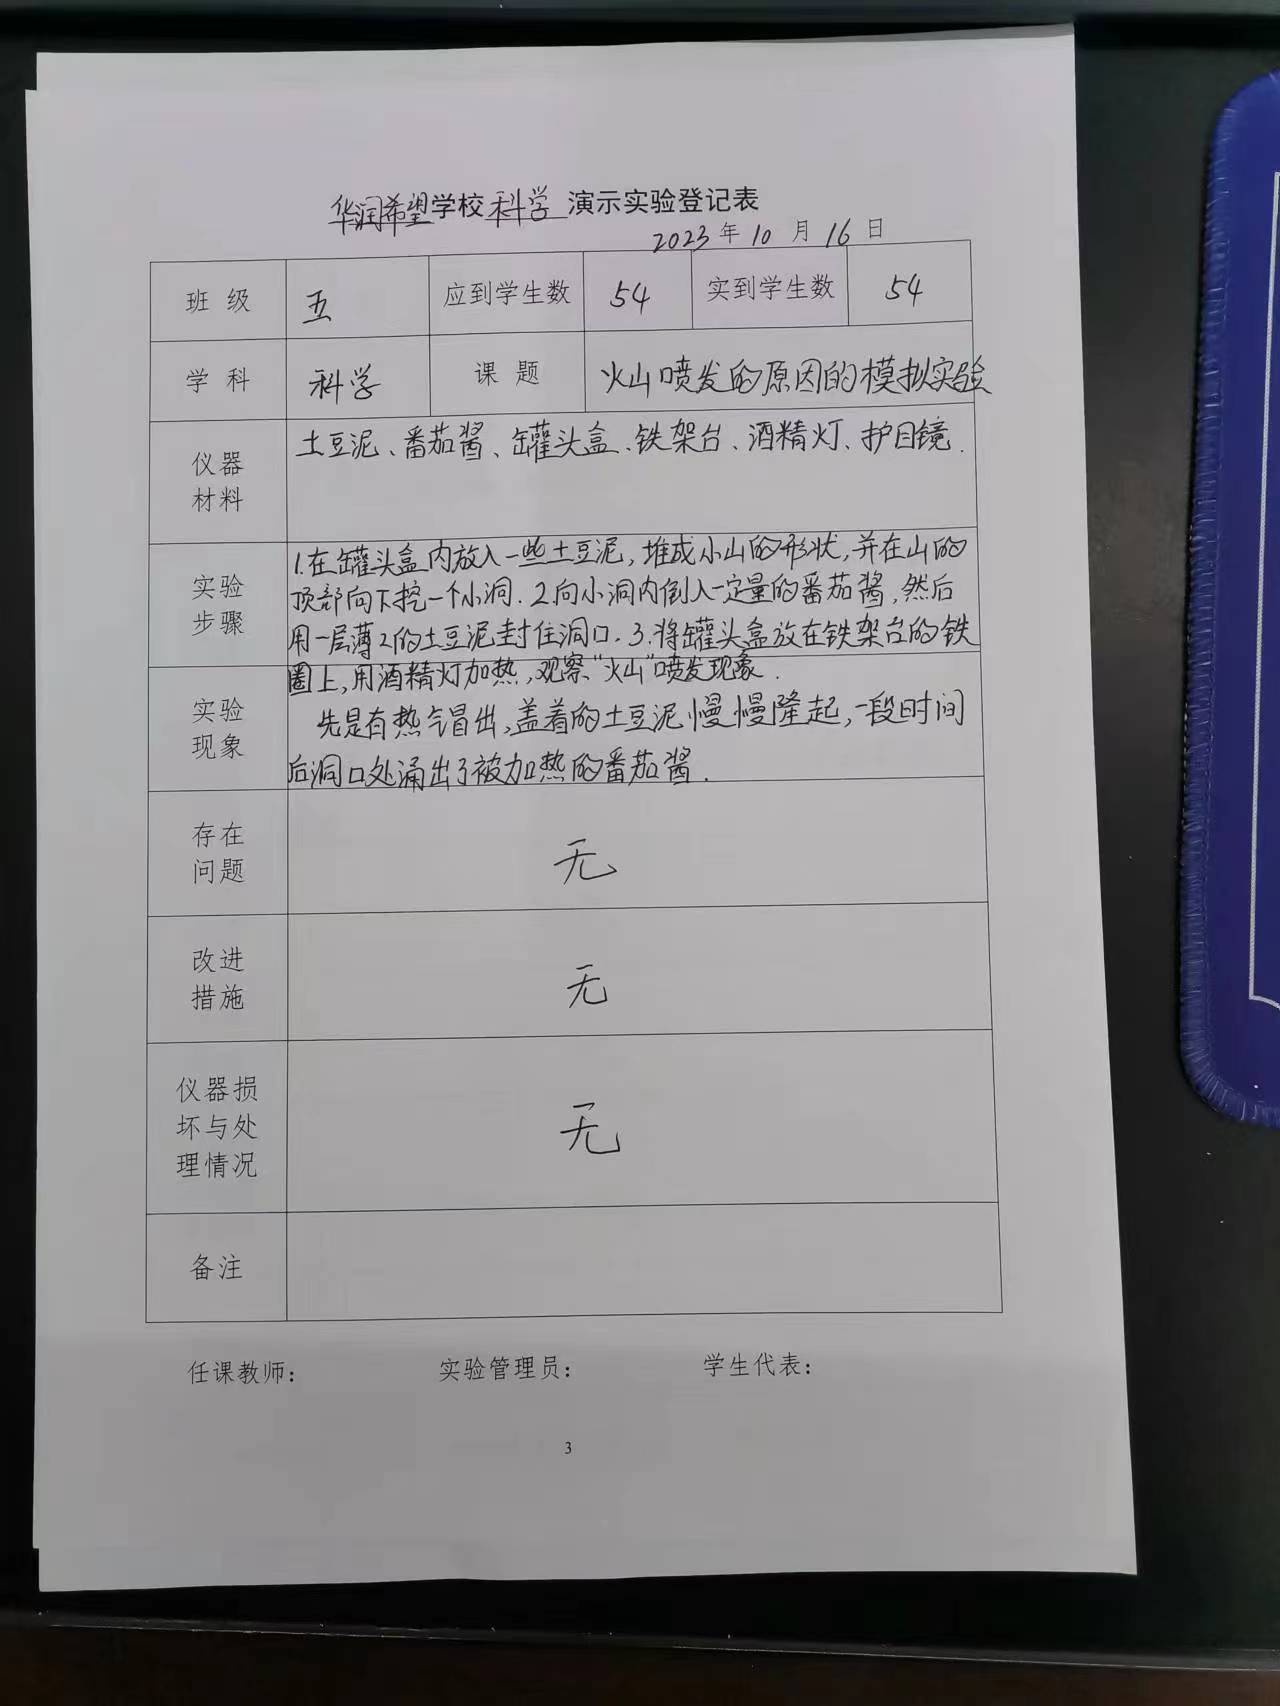 华润希望学校科学演示实验登记表
2023年10月16日
班级 五 应到学生数 54 实到学生数 54
学科 科学 课题 火山喷发的原因的模拟实验
仪器
材料
土豆泥、番茄酱、罐头盒、铁架台、酒精灯、护目镜.
实验
步骤
1.在罐头盒内放入一些土豆泥,堆成小山的形状,并在山的
顶部向下挖一个小洞.2.向小洞内倒入一定量的番茄酱,然后
用一层薄2的土豆泥封住洞口.3.将罐头盒放在铁架台的铁
圈上,用酒精灯加热,观察“火山”喷发现象.
实验
现象
先是有热气冒出,盖着的土豆泥慢慢隆起,一段时间
后洞口处涌出了被加热的番茄酱.
存在
问题
无
改进
措施
无
仪器损
坏与处
理情况
无
备注
任课教师: 实验管理员: 学生代表:
3